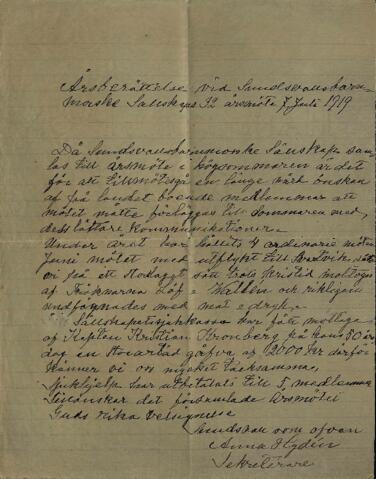 Årsberättelse vid Sundsvalls barn-
morske Sällskaps 32 årsmöte 7 Juli 1919
Då Sundsvalls barnmorske Sällskap sam-
las till årsmöte i högsommaren är det
för att tillmötesgå en länge närd önskan
af på landet boende medlemmar att
mötet måtte förläggas till sommaren med
dess lättare kommunikationer.
Under året har hållits 4 ordinarie möten
Juni mötet med utflykt till
vi på ett sätt trots kristid mottogos
af Fröknarna Löf - Wallin och rikligen
undfägnades med mat o dryck.
Sällskapets sjukkassa har fått mottaga
af Kapten Kristian Kronberg på hans 80 års
dag en storartad gåfva af 2000 Kr därför
känner vi oss mycket tacksamma,
Sjukhjälp har utbetalats till 5, medlemmar
Tillönskar det församlade årsmötet
Guds rika välsignelse
Sundsvall som ofvan
Anna Hydén
Sekreterare